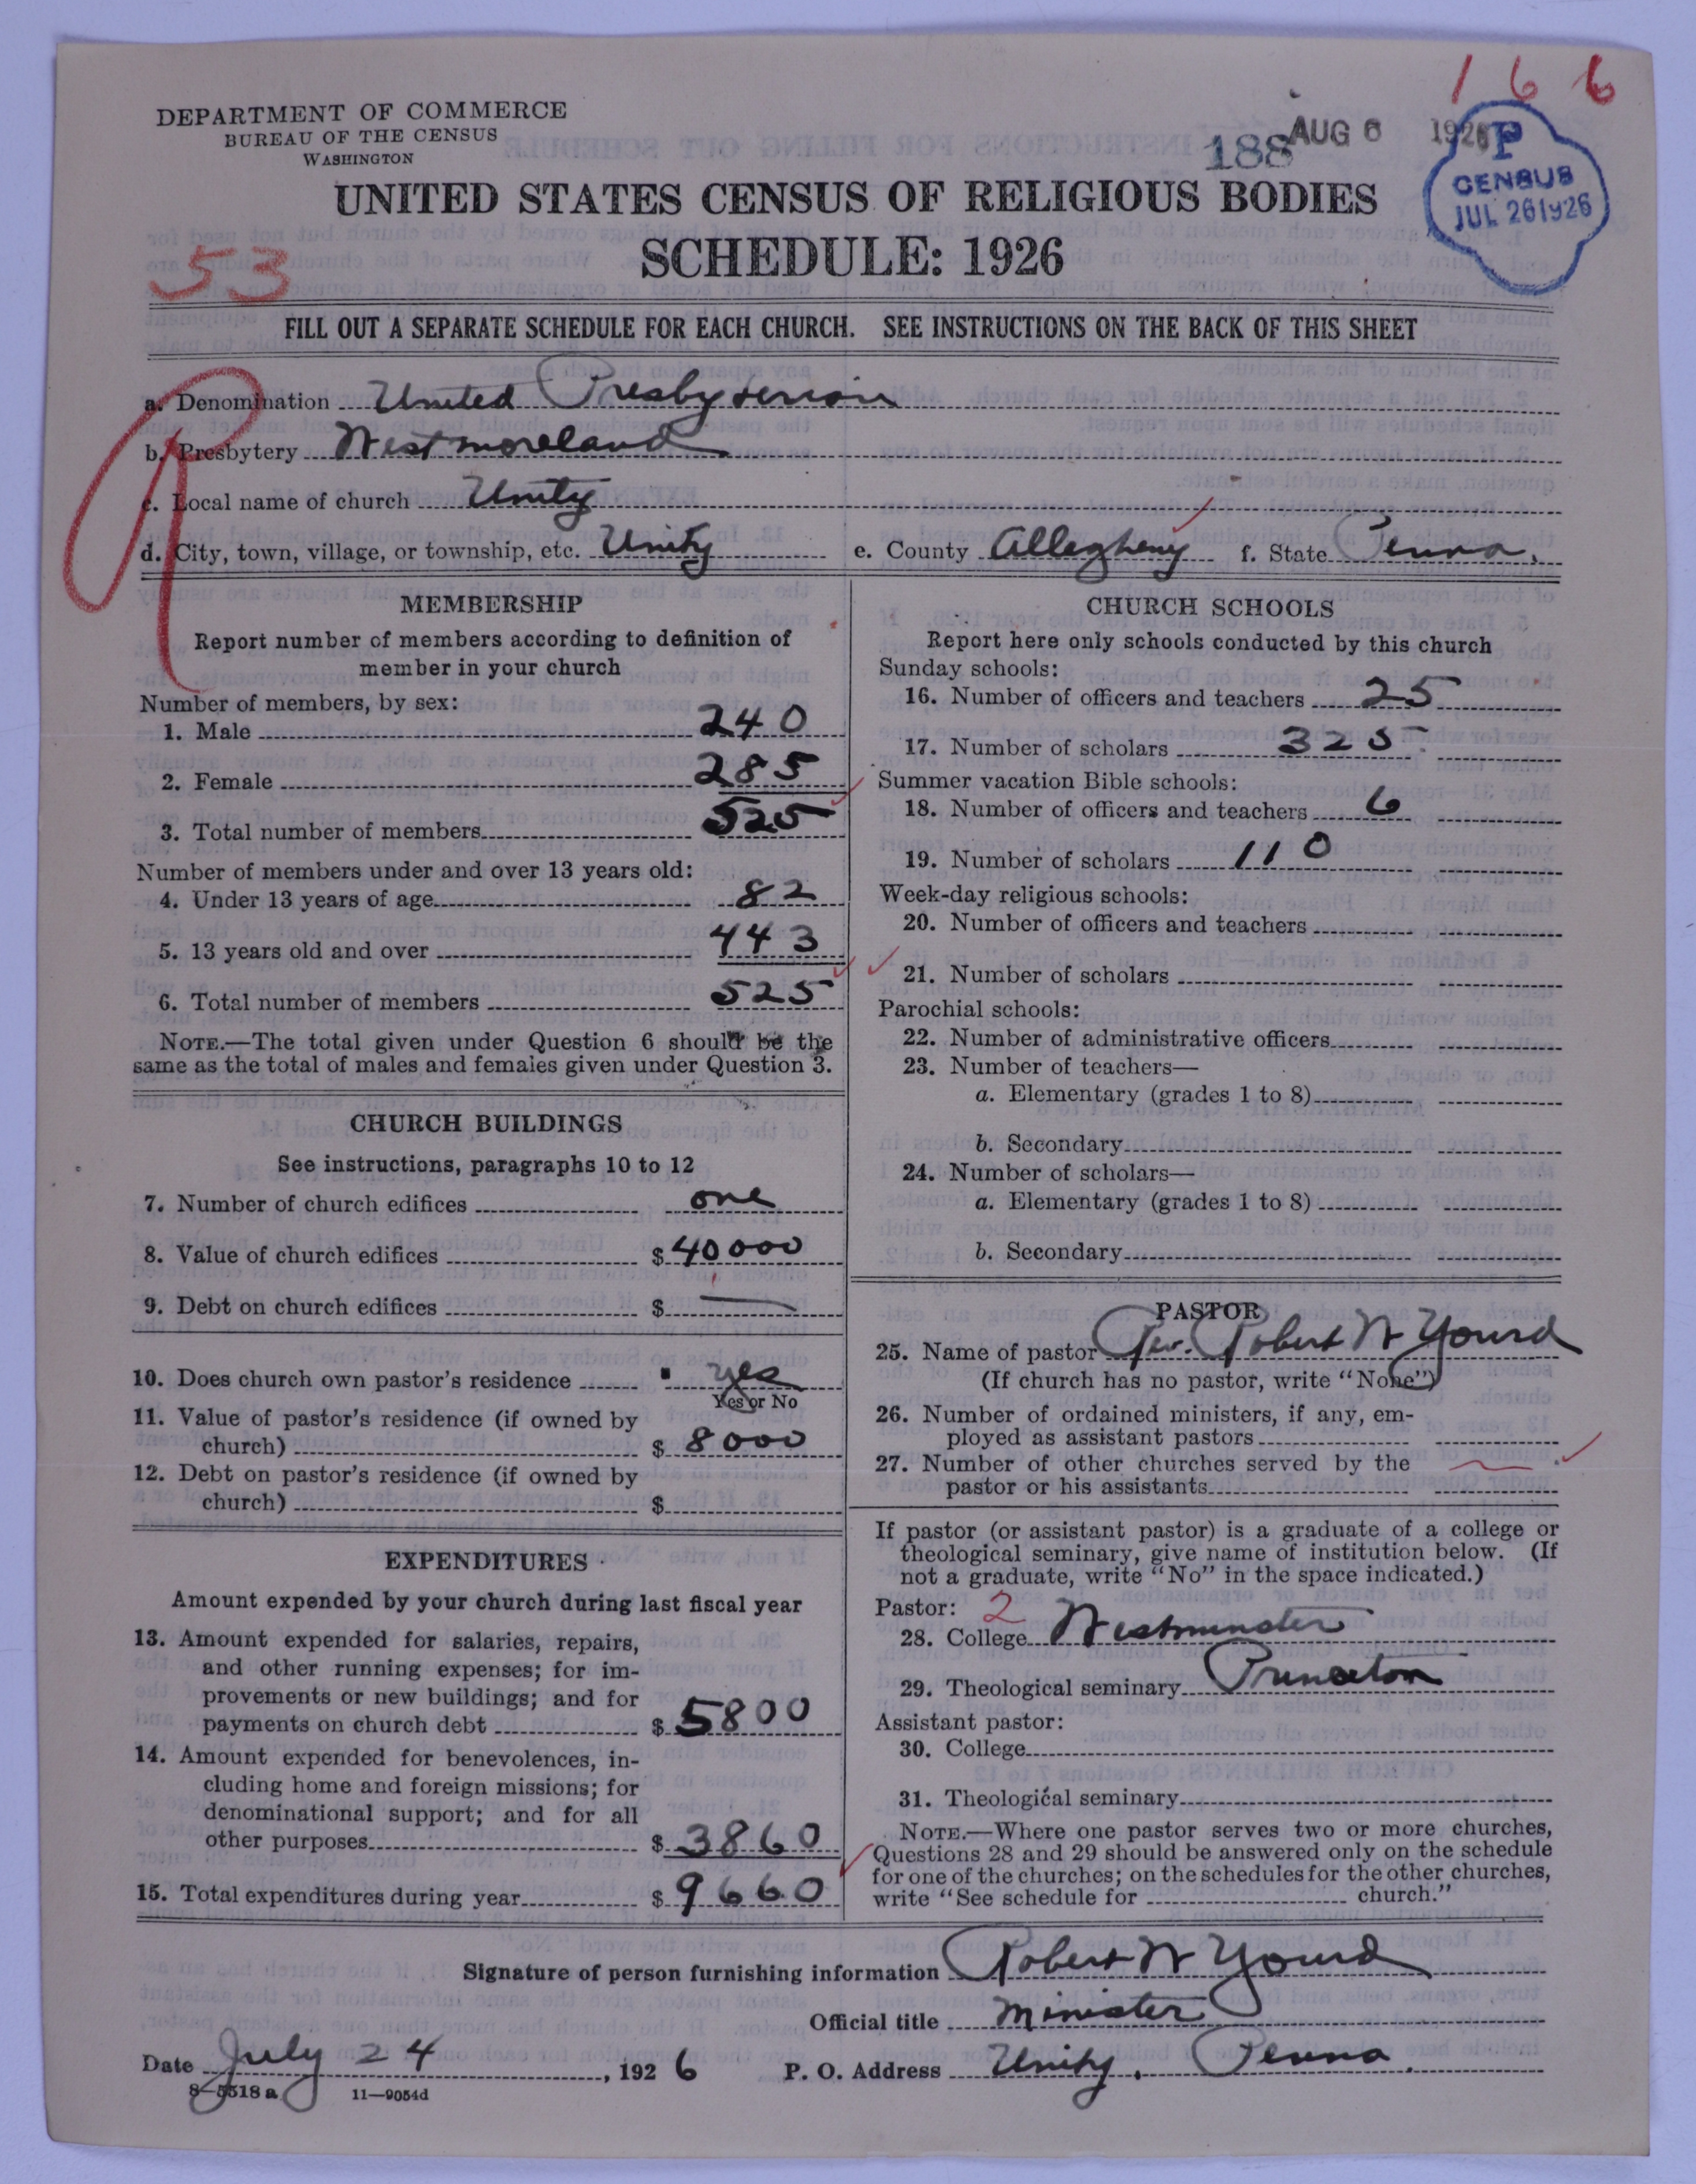 166
DEPARTMENT OF COMMERCE
BUREAU OF THE CENSUS
WASHINGTON
188 AUG 6 1926
P
CENSUS
JUL 26 1926
UNITED STATES CENSUS OF RELIGIOUS BODIES
SCHEDULE: 1926
53
FILL OUT A SEPARATE SCHEDULE FOR EACH CHURCH. SEE INSTRUCTIONS ON THE BACK OF THIS SHEET
a. Denomination United Presbyterian
b. Presbytery Westmoreland
c. Local name of church Unity
d. City, town, village, or township, etc. Unity e. County Allegheny f. State Penna.
MEMBERSHIP
Report number of members according to definition of
member in your church
Number of members, by sex:
1. Male 240
2. Female 285
3. Total number of members 525
Number of members under and over 13 years old:
4. Under 13 years of age 82
5. 13 years old and over 443
6. Total number of members 525
NOTE.—The total given under Question 6 should be the
same as the total of males and females given under Question 3.
CHURCH BUILDINGS
See instructions, paragraphs 10 to 12
7. Number of church edifices one
8. Value of church edifices $ 40000
9. Debt on church edifices $ —
10. Does church own pastor's residence yes
Yes or No
11. Value of pastor's residence (if owned by
church) $ 8000
12. Debt on pastor's residence (if owned by
church) $
EXPENDITURES
Amount expended by your church during last fiscal year
13. Amount expended for salaries, repairs,
and other running expenses; for im-
provements or new buildings; and for
payments on church debt $ 5800
14. Amount expended for benevolences, in-
cluding home and foreign missions; for
denominational support; and for all
other purposes $ 3860
15. Total expenditures during year $ 9660
CHURCH SCHOOLS
Report here only schools conducted by this church
Sunday schools:
16. Number of officers and teachers 25
17. Number of scholars 325
Summer vacation Bible schools:
18. Number of officers and teachers 6
19. Number of scholars 110
Week-day religious schools:
20. Number of officers and teachers
21. Number of scholars
Parochial schools:
22. Number of administrative officers
23. Number of teachers—
a. Elementary (grades 1 to 8)
b. Secondary
24. Number of scholars—
a. Elementary (grades 1 to 8)
b. Secondary
PASTOR
25. Name of pastor Rev. Robert W Yourd
(If church has no pastor, write "None")
26. Number of ordained ministers, if any, em-
ployed as assistant pastors
27. Number of other churches served by the
pastor or his assistants
If pastor (or assistant pastor) is a graduate of a college or
theological seminary, give name of institution below. (If
not a graduate, write "No" in the space indicated.)
Pastor: 2
28. College Westminster
29. Theological seminary Princeton
Assistant pastor:
30. College
31. Theological seminary
NOTE.—Where one pastor serves two or more churches,
Questions 28 and 29 should be answered only on the schedule
for one of the churches; on the schedules for the other churches,
write "See schedule for church."
Signature of person furnishing information Robert W Yourd
Official title Minister
Date July 24, 1926 P. O. Address Unity, Penna.
8—5518 a 11—9054d